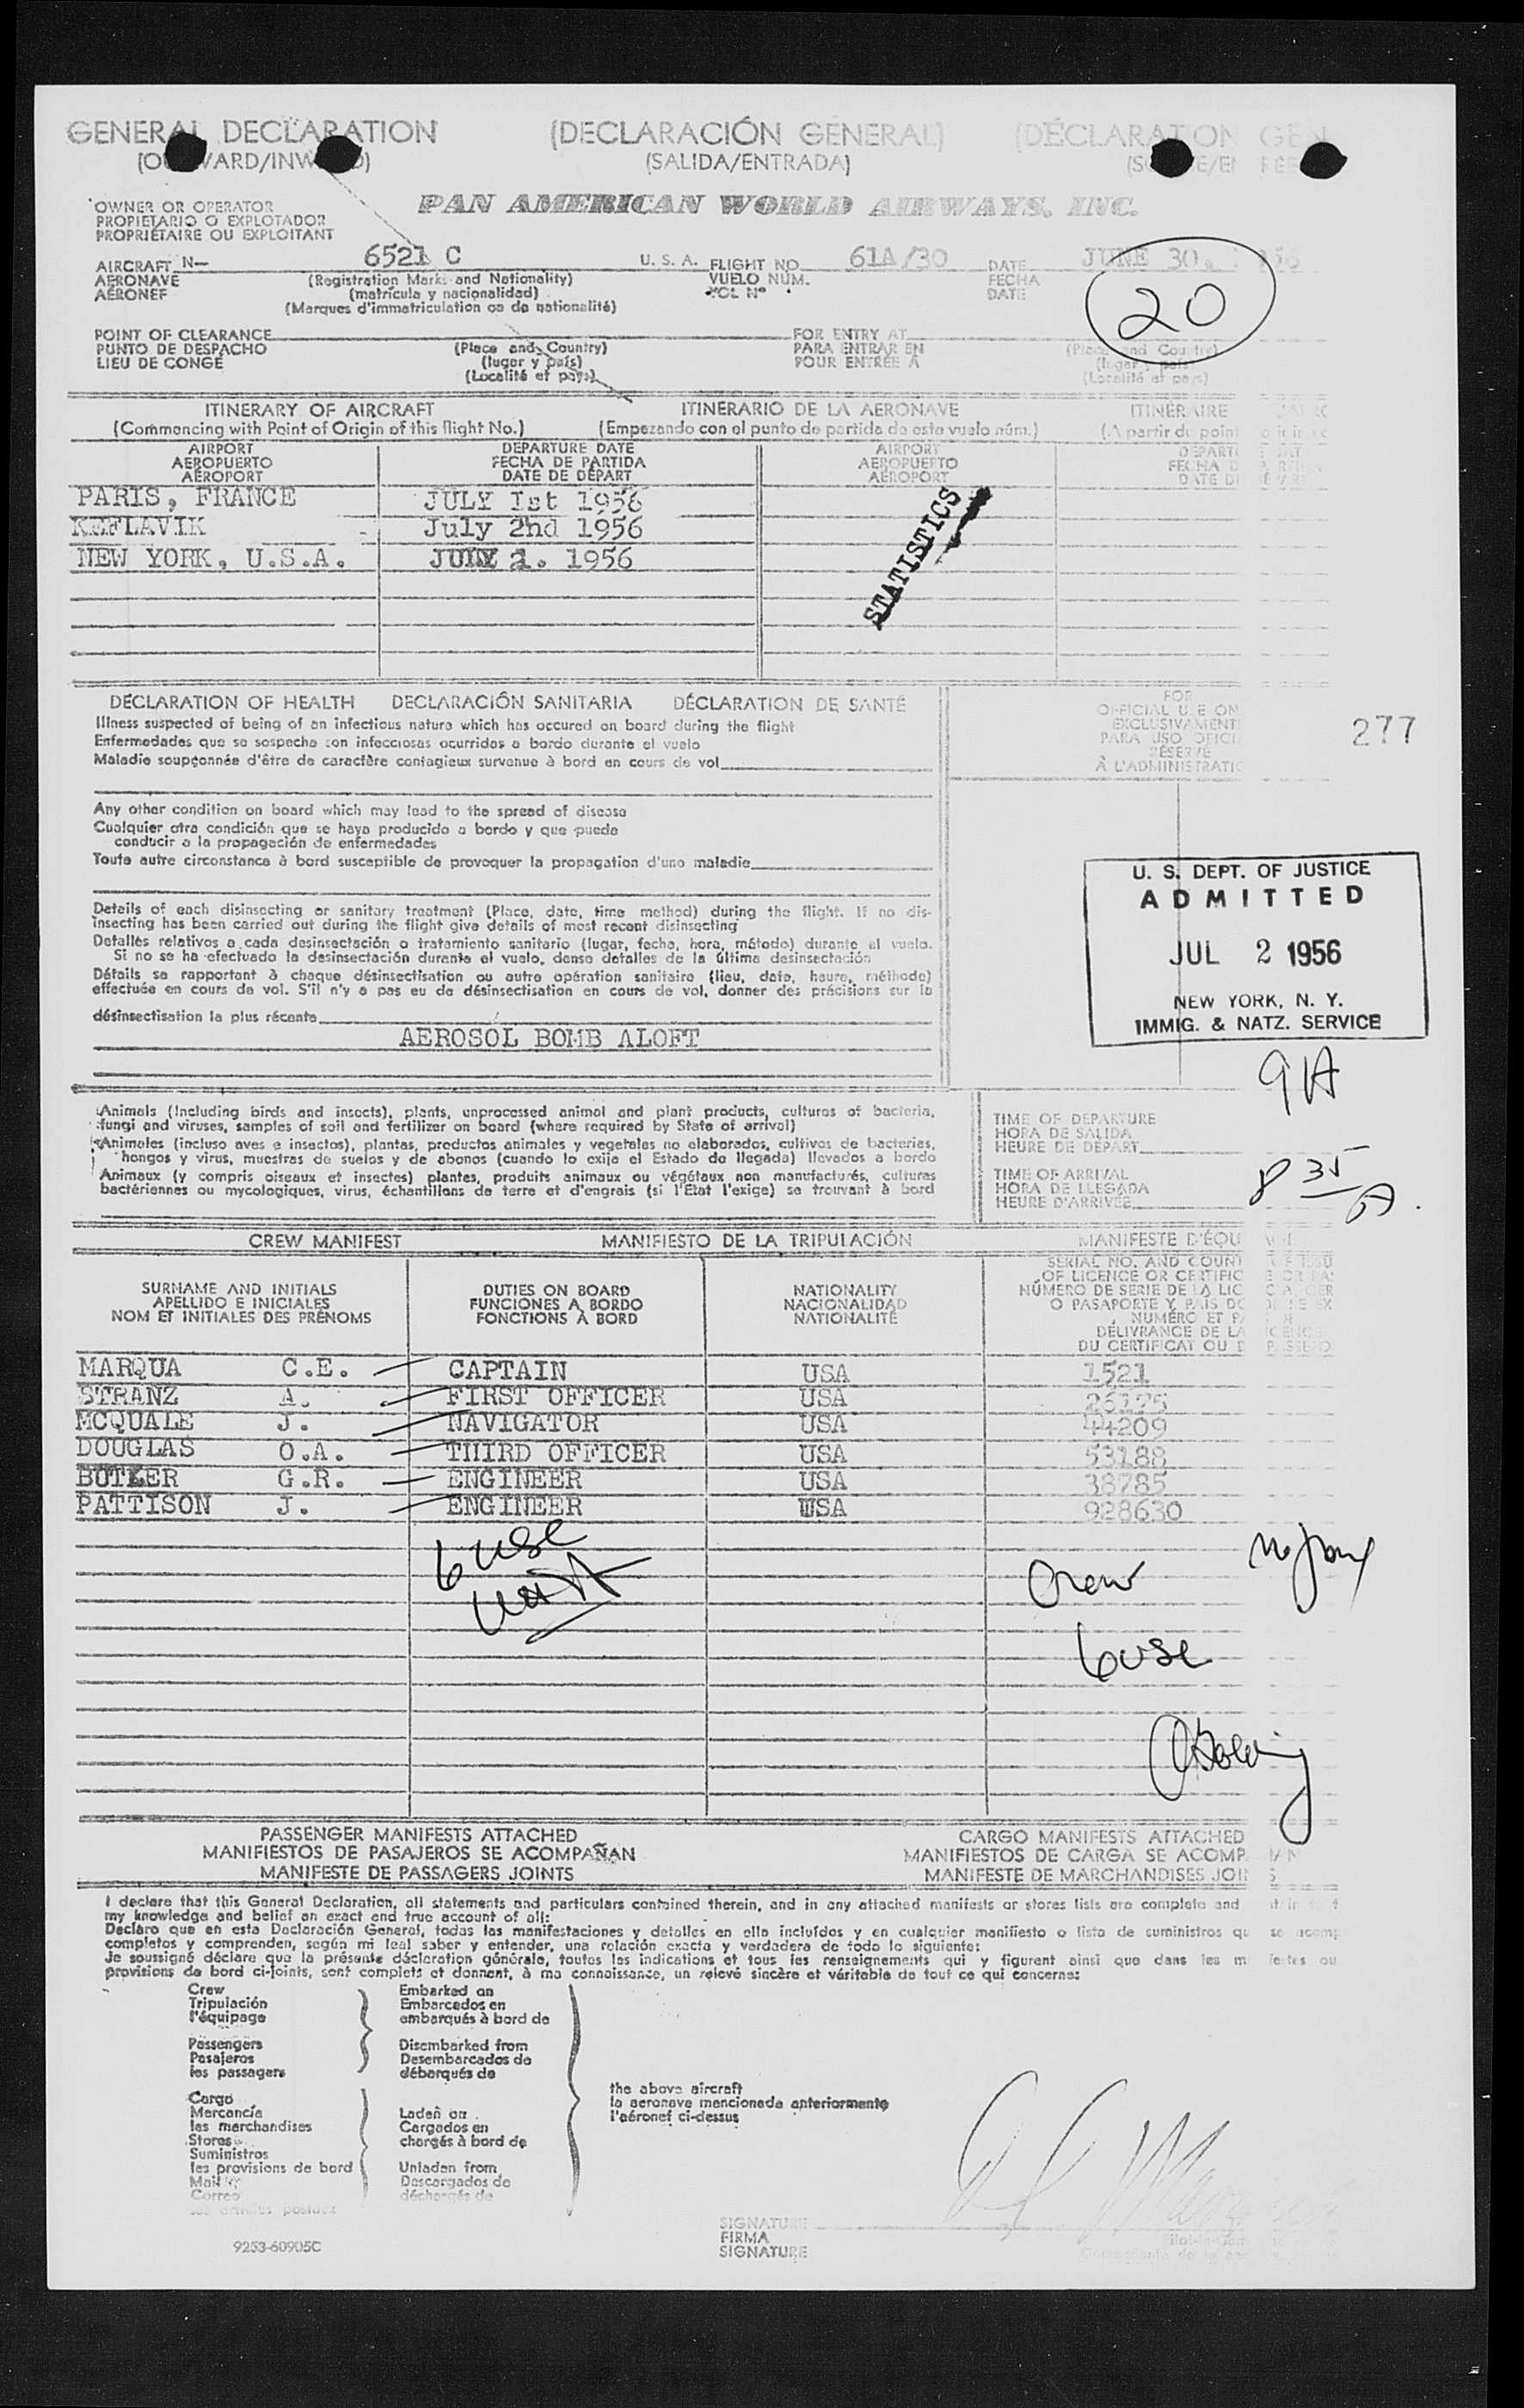 GENERAL DECLARATION (DECLARACIÓN GENERAL) (DÉCLARATION GEN
(SALIDA/ENTRADA)
OWNER OR OPERATOR
PROPIETARIO O EXPLOTADOR
PROPRIÉTAIRE OU EXPLOITANT
PAN AMERICAN WORLD AIRWAYS, INC.
AIRCRAFT N— 6521 C U. S. A. FLIGHT NO. 61A/30 DATE JUNE 30.
AERONAVE (Registration Marks and Nationality) VUELO NÚM. FECHA
AÉRONEF (matrícula y nacionalidad) VOL Nº DATE
(Marques d'immatriculation ou de nationalité)
20
POINT OF CLEARANCE FOR ENTRY AT
PUNTO DE DESPACHO (Place and Country) PARA ENTRAR EN (Place and Country)
LIEU DE CONGÉ (lugar y país) POUR ENTRÉE À (lugar y país)
(Localité et pays) (Localité et pays)
ITINERARY OF AIRCRAFT ITINERARIO DE LA AERONAVE ITINERAIRE
(Commencing with Point of Origin of this flight No.) (Empezando con el punto de partida de este vuelo núm.) (A partir du point
AIRPORT DEPARTURE DATE AIRPORT
AEROPUERTO FECHA DE PARTIDA AEROPUERTO
AÉROPORT DATE DE DÉPART AÉROPORT
PARIS, FRANCE JULY Ist 1956
KEFLAVIK July 2nd 1956
NEW YORK, U.S.A. JULY 2. 1956
STATISTICS
DECLARATION OF HEALTH DECLARACIÓN SANITARIA DÉCLARATION DE SANTÉ
Illness suspected of being of an infectious nature which has occured on board during the flight
Enfermedades que se sospecha son infecciosas ocurridas a bordo durante el vuelo
Maladie soupçonnée d'être de caractère contagieux survenue à bord en cours de vol
FOR
OFFICIAL USE ON
EXCLUSIVAMENT
PARA USO OFICI
RÉSERVÉ
À L'ADMINISTRATIO
277
Any other condition on board which may lead to the spread of disease
Cualquier otra condición que se haya producido a bordo y que pueda
conducir a la propagación de enfermedades
Toute autre circonstance à bord susceptible de provoquer la propagation d'une maladie
Details of each disinsecting or sanitary treatment (Place, date, time method) during the flight. If no dis-
insecting has been carried out during the flight give details of most recent disinsecting
Detalles relativos a cada desinsectación o tratamiento sanitario (lugar, fecha, hora, método) durante el vuelo.
Si no se ha efectuado la desinsectación durante el vuelo, dense detalles de la última desinsectación
Détails se rapportant à chaque désinsectisation ou autre opération sanitaire (lieu, date, heure, méthode)
effectuée en cours de vol. S'il n'y a pas eu de désinsectisation en cours de vol, donner des précisions sur la
désinsectisation la plus récente
AEROSOL BOMB ALOFT
U. S. DEPT. OF JUSTICE
ADMITTED
JUL 2 1956
NEW YORK, N. Y.
IMMIG. & NATZ. SERVICE
91A
Animals (Including birds and insects), plants, unprocessed animal and plant products, cultures of bacteria,
fungi and viruses, samples of soil and fertilizer on board (where required by State of arrival)
Animales (incluso aves e insectos), plantas, productos animales y vegetales no elaborados, cultivos de bacterias,
hongos y virus, muestras de suelos y de abonos (cuando lo exija el Estado de llegada) llevados a bordo
Animaux (y compris oiseaux et insectes) plantes, produits animaux ou végétaux non manufacturés, cultures
bactériennes ou mycologiques, virus, échantillons de terre et d'engrais (si l'État l'exige) se trouvant à bord
TIME OF DEPARTURE
HORA DE SALIDA
HEURE DE DÉPART
TIME OF ARRIVAL
HORA DE LLEGADA
HEURE D'ARRIVÉE
8 35 A.
CREW MANIFEST MANIFIESTO DE LA TRIPULACIÓN MANIFESTE D'ÉQU
SURNAME AND INITIALS DUTIES ON BOARD NATIONALITY
APELLIDO E INICIALES FUNCIONES A BORDO NACIONALIDAD
NOM ET INITIALES DES PRÉNOMS FONCTIONS À BORD NATIONALITÉ
SERIAL NO. AND COUNT
OF LICENCE OR CERTIFIC
NÚMERO DE SERIE DE LA LIC
O PASAPORTE Y PAIS DO
NUMÉRO ET PA
DÉLIVRANCE DE LA
DU CERTIFICAT OU D
MARQUA C.E. CAPTAIN USA 1521
STRANZ A. FIRST OFFICER USA 26195
MCQUALE J. NAVIGATOR USA 44209
DOUGLAS O.A. THIRD OFFICER USA 53188
BUTLER G.R. ENGINEER USA 38785
PATTISON J. ENGINEER USA 928630
6 USC
Crew
6 USC
PASSENGER MANIFESTS ATTACHED CARGO MANIFESTS ATTACHED
MANIFIESTOS DE PASAJEROS SE ACOMPAÑAN MANIFIESTOS DE CARGA SE ACOMP
MANIFESTE DE PASSAGERS JOINTS MANIFESTE DE MARCHANDISES JOI
I declare that this General Declaration, all statements and particulars contained therein, and in any attached manifests or stores lists are complete and
my knowledge and belief an exact and true account of all:
Declaro que en esta Declaración General, todas las manifestaciones y detalles en ella incluídos y en cualquier manifiesto o lista de suministros qu
completos y comprenden, según mi leal saber y entender, una relación exacta y verdadera de todo lo siguiente:
Je soussigné déclare que la présente déclaration générale, toutes les indications et tous les renseignements qui y figurent ainsi que dans les
provisions de bord ci-joints, sont complets et donnent, à ma connaissance, un relevé sincère et véritable de tout ce qui concerne:
Crew Embarked on
Tripulación Embarcados en
l'équipage embarqués à bord de
Passengers Disembarked from
Pasajeros Desembarcados de
les passagers débarqués de
the above aircraft
la aeronave mencionada anteriormente
l'aéronef ci-dessus
Cargo
Mercancía Laden on
les marchandises Cargados en
Stores chargés à bord de
Suministros
les provisions de bord Unladen from
Mail Descargados de
Correo déchargés de
les articles postaux
SIGNATURE
FIRMA
SIGNATURE
9253-60905C